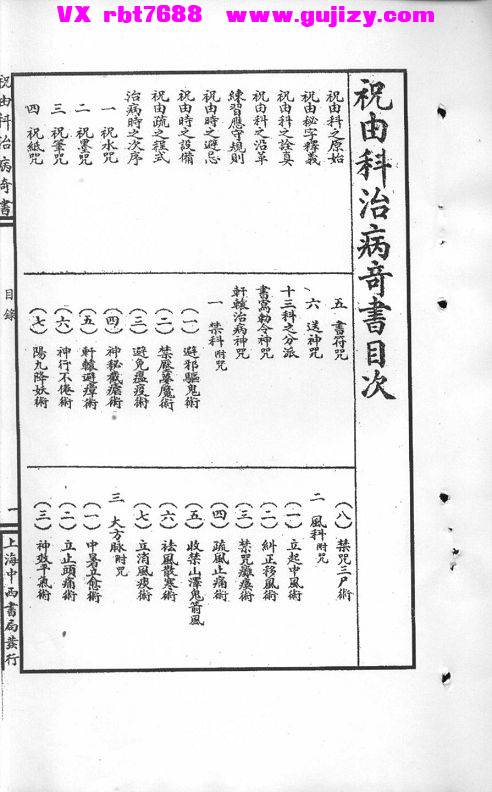 VX rbt7688 www.gujizy.com
祝由科治病奇書目次
祝由科之原始
祝由秘字釋義
祝由科之詮真
祝由科之沿革
練習應守規則
祝由時之避忌
祝由時之設備
祝由疏之程式
治病時之次序
一 祝水咒
二 祝墨咒
三 祝筆咒
四 祝紙咒
五 書符咒
六 送神咒
十三科之分派
書寫勅令神咒
軒轅治病神咒
一 禁科附咒
(一) 避邪驅鬼術
(二) 禁壓摹魔術
(三) 避免瘟疫術
(四) 神秘截瘧術
(五) 軒轅避瘴術
(六) 神行不倦術
(七) 陽九降妖術
(八) 禁咒三尸術
二 風科附咒
(一) 立起中風術
(二) 糾正移風術
(三) 禁咒癱瘓術
(四) 疏風止痛術
(五) 收禁山澤鬼箭風
(六) 祛風散寒術
(七) 立消風痰術
三 大方脉附咒
(一) 中暑立愈術
(二) 立止頭痛術
(三) 神效平氣術
祝由科治病奇書
目錄
一
上海中西書局發行